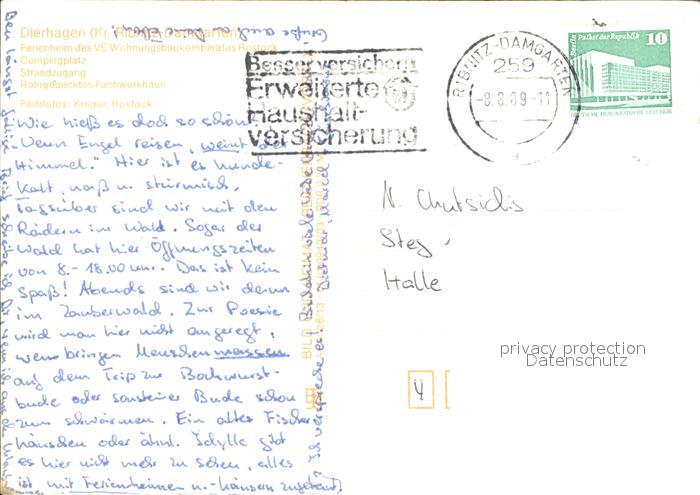 Dierhagen (Kr. Ribnitz-Damgarten)
Ferienheim des VE Wohnungsbaukombinates Rostock
Campingplatz
Strandzugang
Rohrgedecktes Fachwerkhaus
Farbfotos: Krüger, Rostock
Wie hieß es doch so schön:
"Wenn Engel reisen, weint der
Himmel." Hier ist es hunde-
kalt, naß u. stürmisch.
Tagsüber sind wir mit den
Rädern im Wald. Sogar der
Wald hat hier Öffnungszeiten
von 8.- 18.00 Uhr. Das ist kein
Spaß! Abends sind wir dann
im Zauberwald. Zur Poesie
wird man hier nicht angeregt,
wenn bringen Menschenmassen
auf dem Trip zur Bockwurst-
bude oder sonstiger Bude schon
zum schwärmen. Ein altes Fischer-
häuschen oder ähnl. Idylle gibt
es hier nicht mehr zu sehen, alles
ist mit Ferienheimen u. -häusern zugebaut.
Besser versichern
Erweiterte
Haushalt-
versicherung
RIBNITZ-DAMGARTEN
259
-8.8.89-11
a
Berlin Palast der Republik 10
DEUTSCHE DEMOKRATISCHE REPUBLIK
N. Chutsidis
Steg
Halle
4
privacy protection
Datenschutz